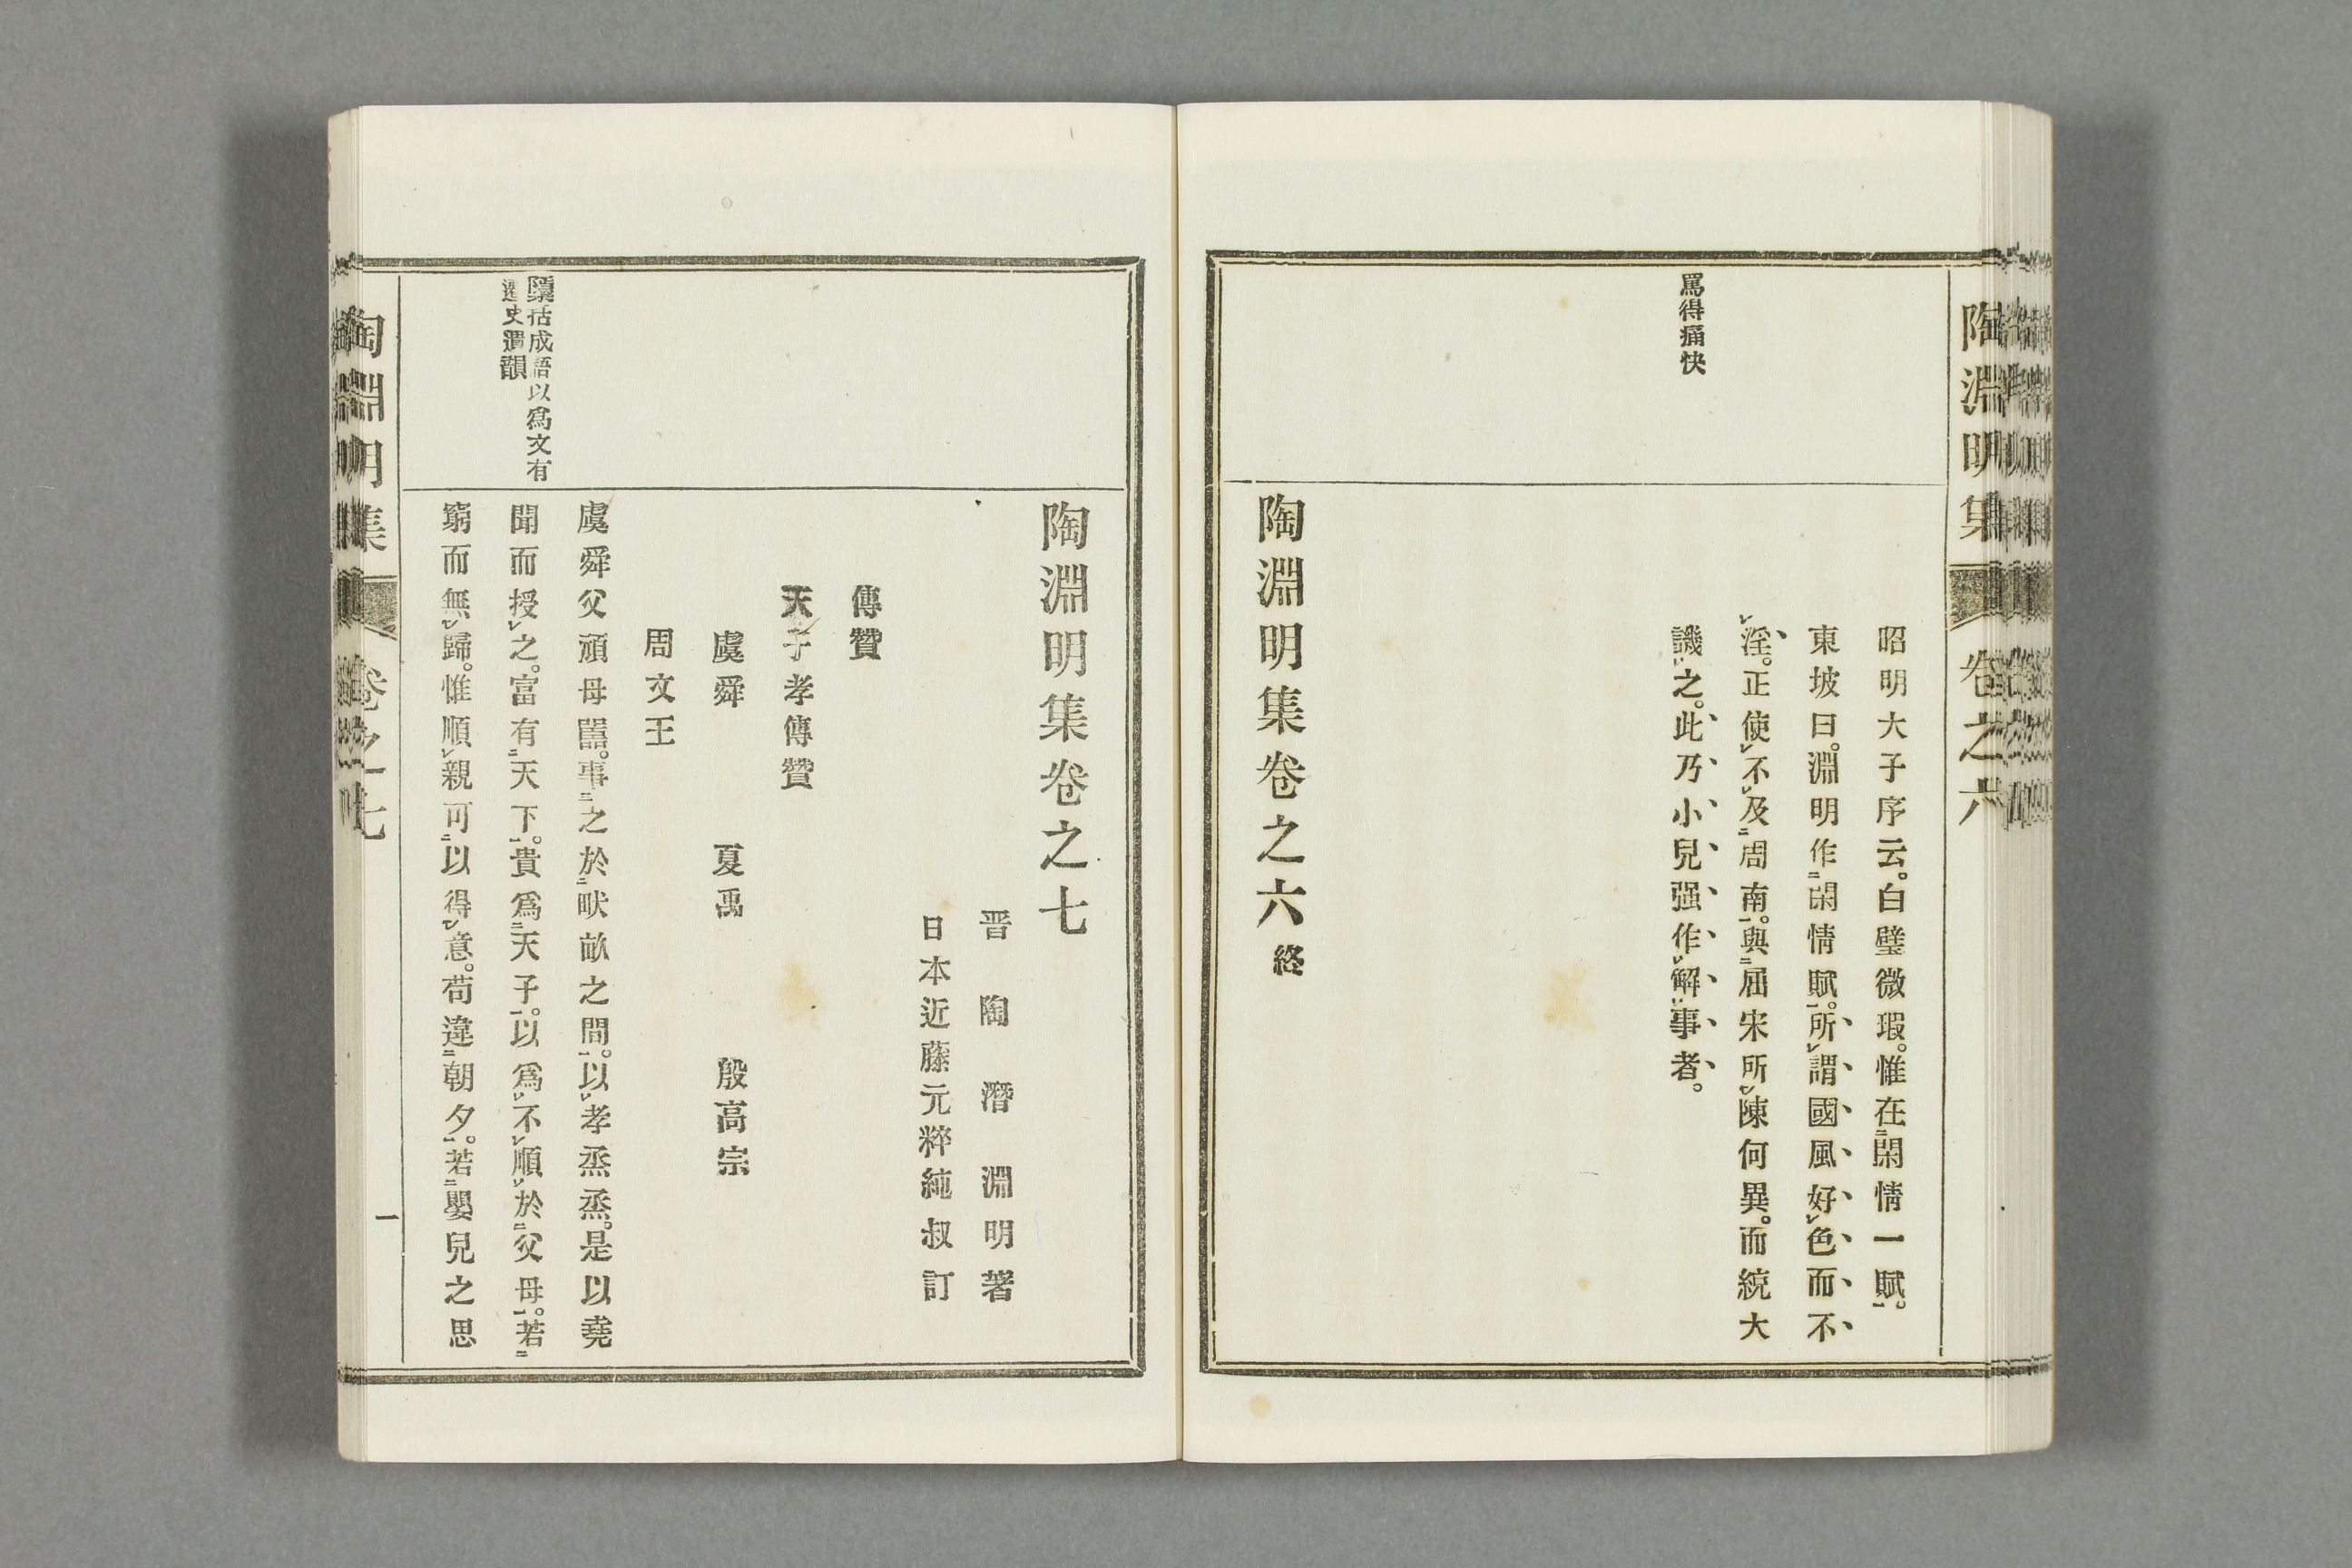 陶淵明集 卷之六
罵得痛快
昭明大子序云。白璧微瑕。惟在閑情一賦。
東坡曰。淵明作閑情賦。所謂國風好色而不
淫。正使不及周南。與屈宋所陳何異。而統大
譏之。此乃小兒强作解事者。
陶淵明集卷之六 終
陶淵明集卷之七
晋 陶 潛 淵明 著
日本 近藤元粹純叔 訂
傳贊
天子孝傳贊
虞舜 夏禹 殷高宗
周文王
檃括成語以爲文有
遷史遺韻
虞舜父頑母嚚。事之於畎畝之間。以孝烝烝。是以堯
聞而授之。富有天下。貴爲天子。以爲不順於父母。若
窮而無歸。惟順親可以得意。苟違朝夕。若嬰兒之思
陶淵明集 卷之七 一